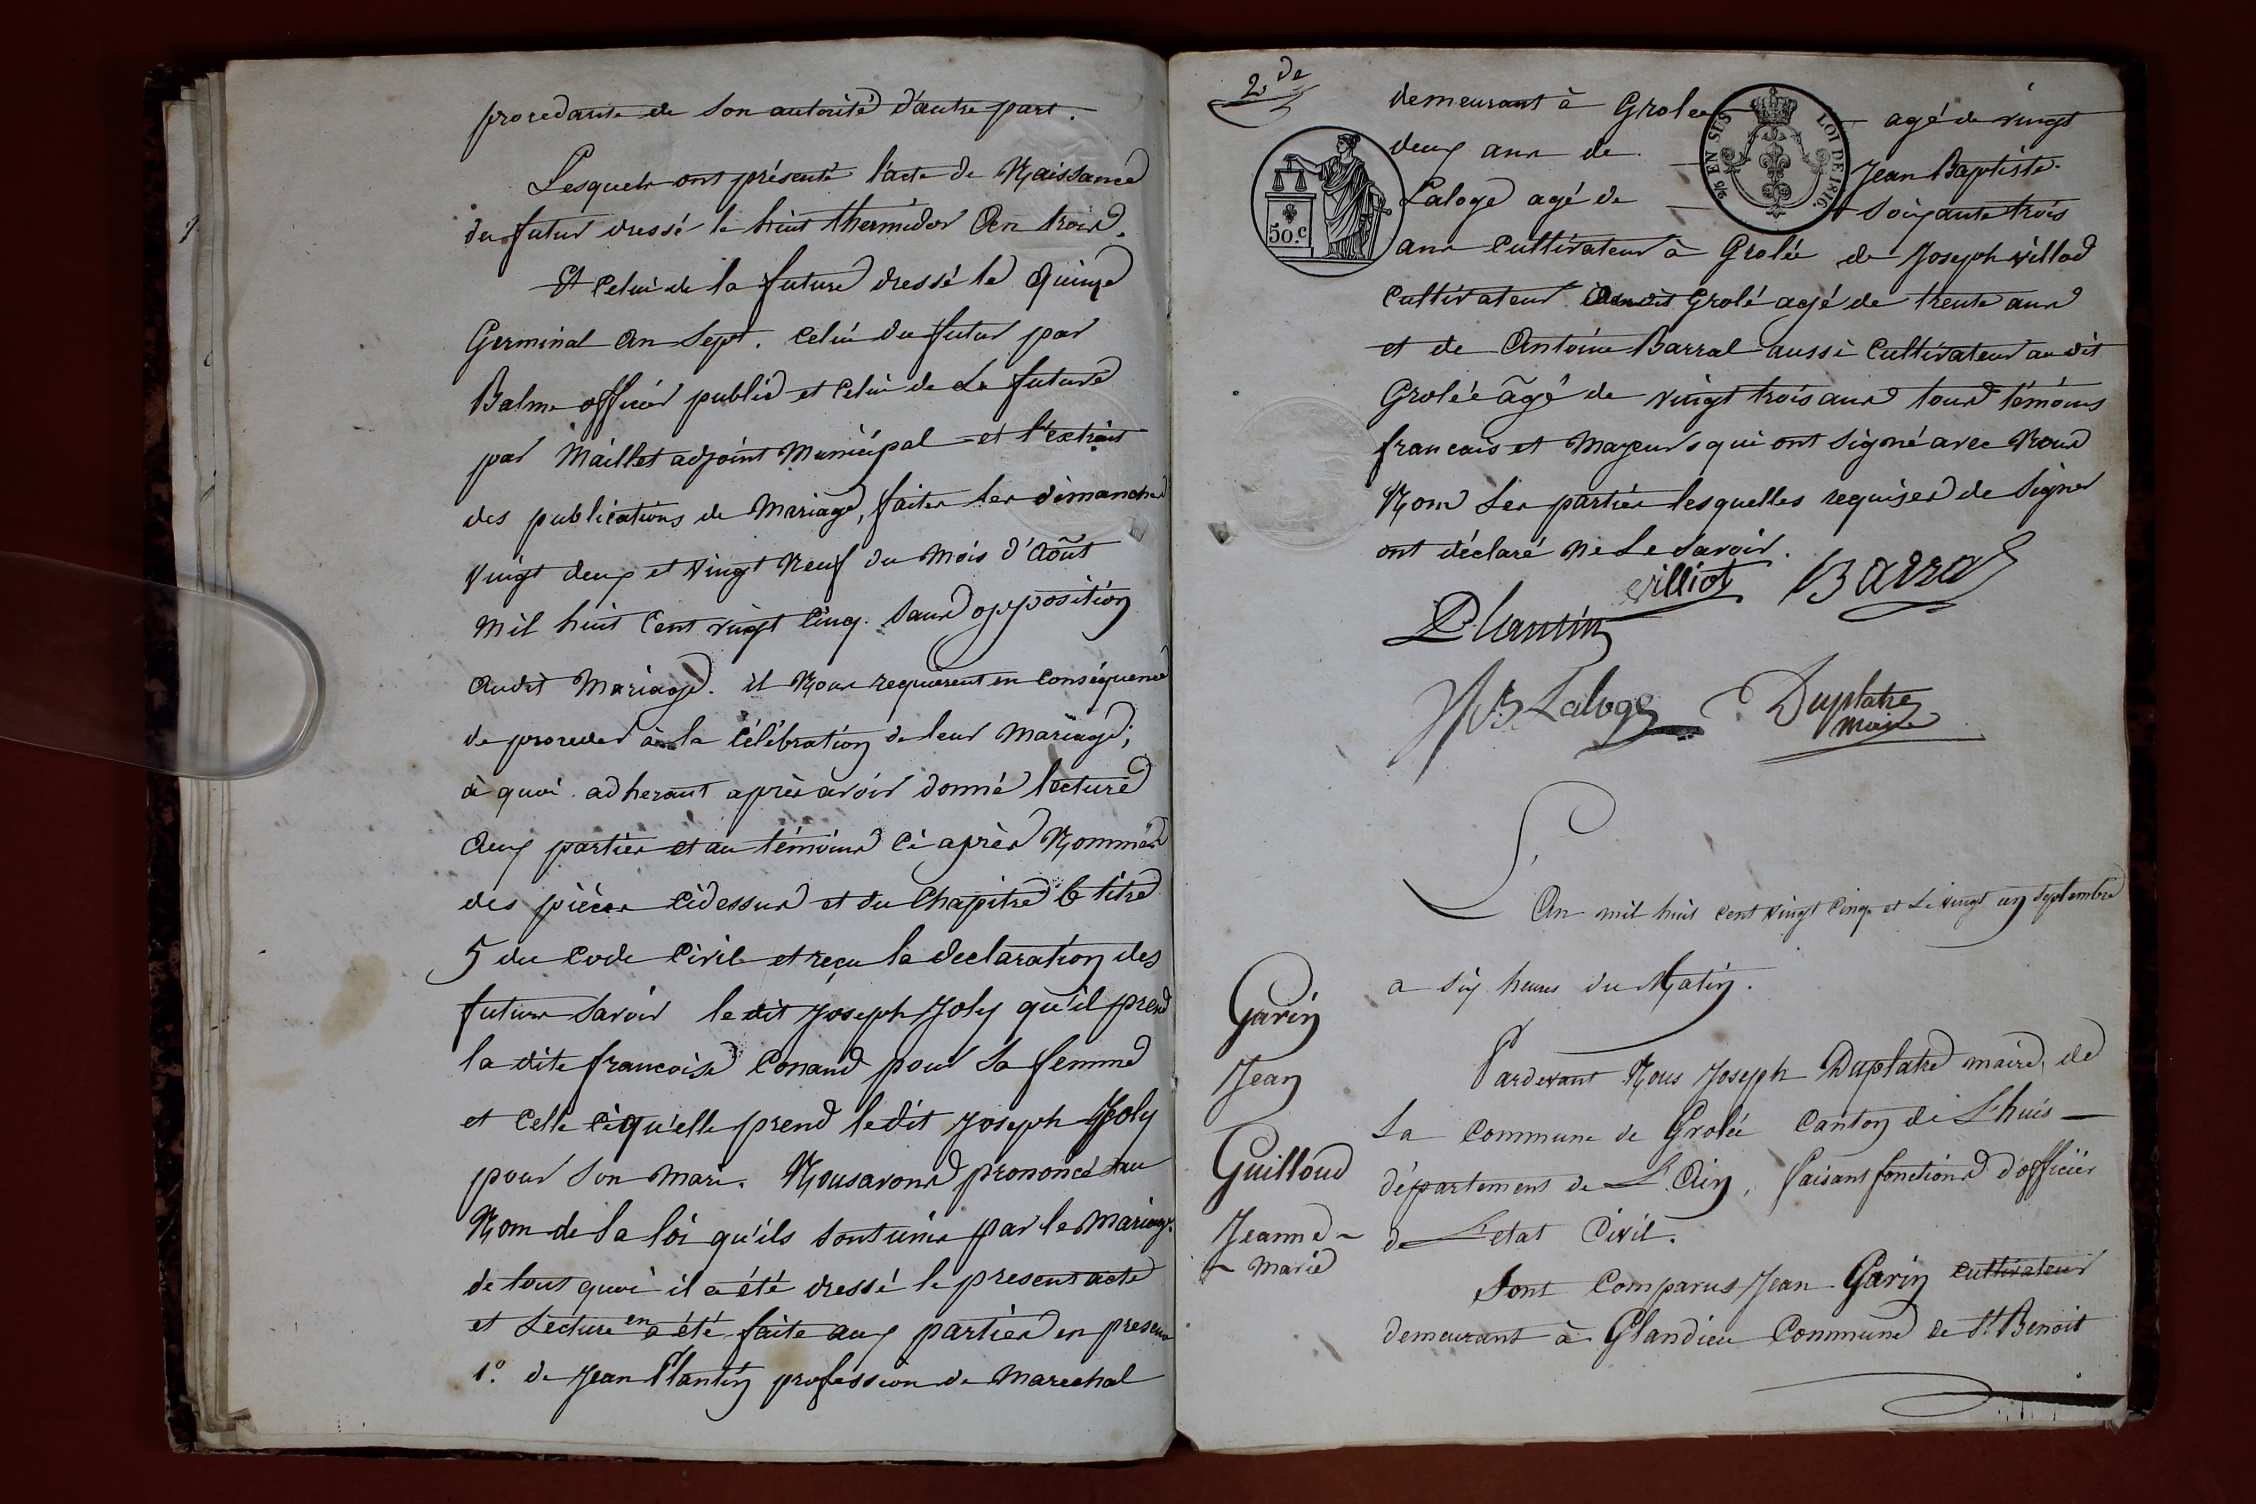 procedante de son autorité d'autre part.
Lesquels ont présenté l'acte de Naissance
du futur dressé le huit thermidor An trois.
Et celui de la future dressé le Quinze
Germinal An Sept. celui du futur par
Balme officier public et celui de La future
par Maillet adjoint Municipal et l'extrait
des publications de Mariage, faites les dimanches
vingt deux et vingt Neuf du Mois d'Août
mil huit Cent vingt Cinq. Sans opposition
Audit Mariage. il Nous requierent en conséquence
de proceder à la Célébration de leur Mariage;
à quoi adherant après avoir donné lecture
Aux parties et au témoins Ci après Nommés
des pièces Cidessus et du Chapitre 6 titre
5 du Code Civil et reçu la declaration des
futurs Savoir le dit Joseph Joly qu'il prend
la dite francoise Conand pour Sa femme
et Celle Ci qu'elle prend ledit Joseph Joly
pour Son Mari. Nousavons prononcé au
Nom de La loi qu'ils sont unis par le Mariage.
de tout quoi il a été dressé le present acte
et Lecture en a été faite aux parties en presence
1.° de Jean Plantin profession de Marechal
2.de
demeurant à Grolée agé de vingt
deux ans de Jean Baptiste
Laloge agé de Soixante trois
ans Cultivateur à Grolée de Joseph villod
Cultivateur Audit Grolé agé de trente ans
et de Antoine Barral aussi Cultivateur au dit
Grolée âgé de vingt trois ans tous témoins
francais et Majeurs qui ont Signé avec Nous
Non Les parties lesquelles requises de Signer
ont déclaré ne Le Savoir.
villiot Barral
Plantin
JB Laloge Duplatre
maire
50.c
EN SUS
LOI DE 1816
L'An mil huit cent vingt Cinq et Le vingt un Septembre
a six heures du Matin.
Pardevant Nous Joseph Duplatre maire, de
La Commune de Grolée Canton de L'huis
département de L'Ain, faisant fonctions d'officier
de L'etat Civil.
Sont Comparus Jean Garin cultivateur
demeurant à Glandieu Commune de St Benoit
Garin
Jean
Guilloud
Jeanne
Marie